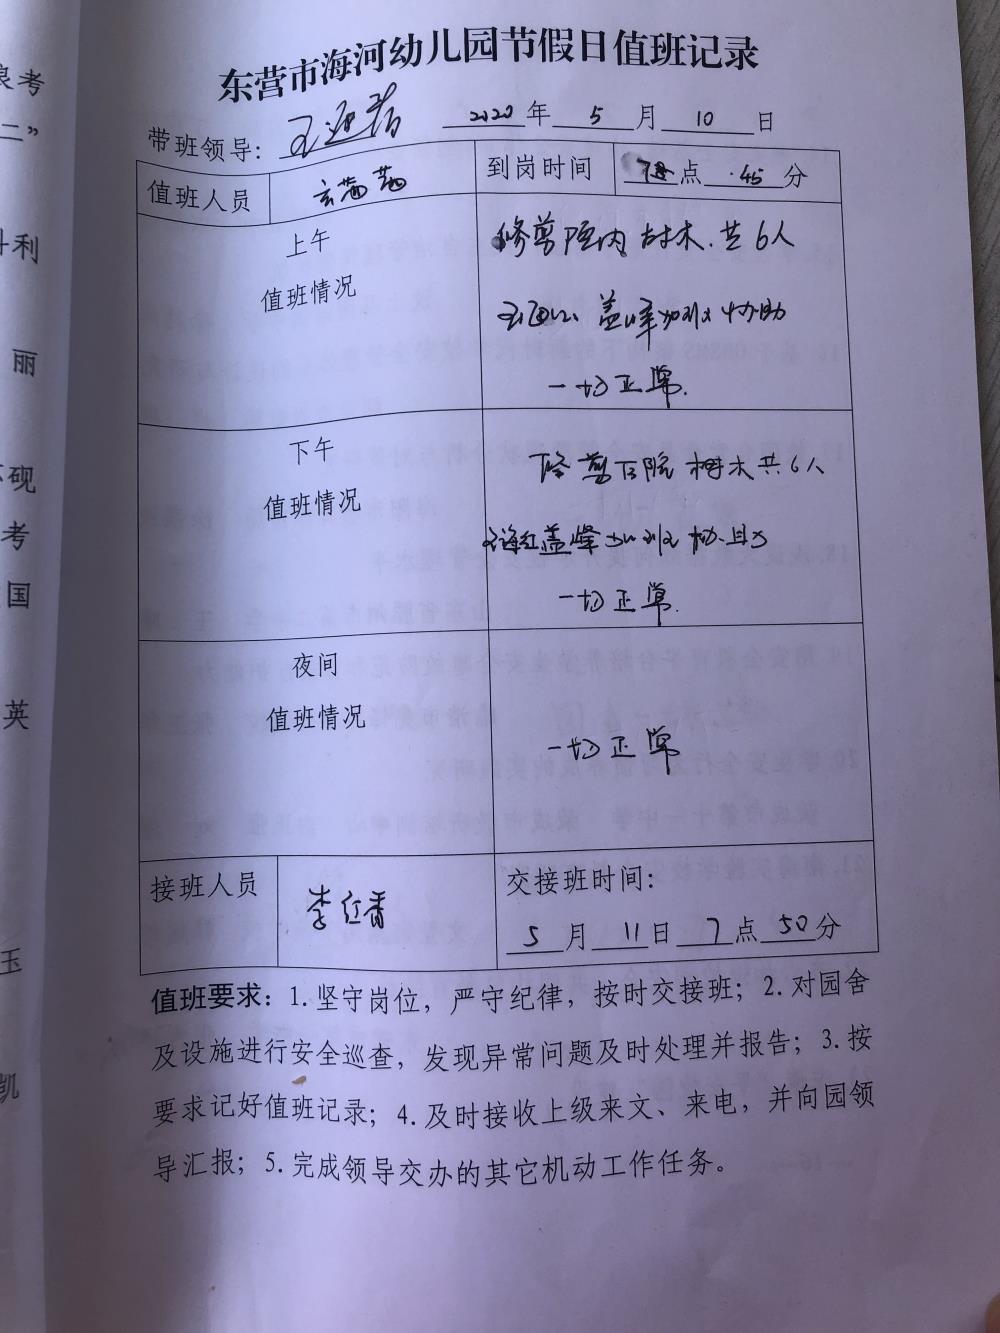 东营市海河幼儿园节假日值班记录
带班领导： 2020年5月10日
值班人员 玄茜茜 到岗时间 7点45分
上午
值班情况
修剪院内树木.共6人
盖峰加班协助
一切正常.
下午
值班情况
修剪后院树木共6人
王海红盖峰加班协助
一切正常.
夜间
值班情况
一切正常
接班人员 李红香 交接班时间：
5月11日7点50分
值班要求：1.坚守岗位，严守纪律，按时交接班；2.对园舍
及设施进行安全巡查，发现异常问题及时处理并报告；3.按
要求记好值班记录；4.及时接收上级来文、来电，并向园领
导汇报；5.完成领导交办的其它机动工作任务。
良考
二”
利
丽
砚
考
国
英
玉
凯